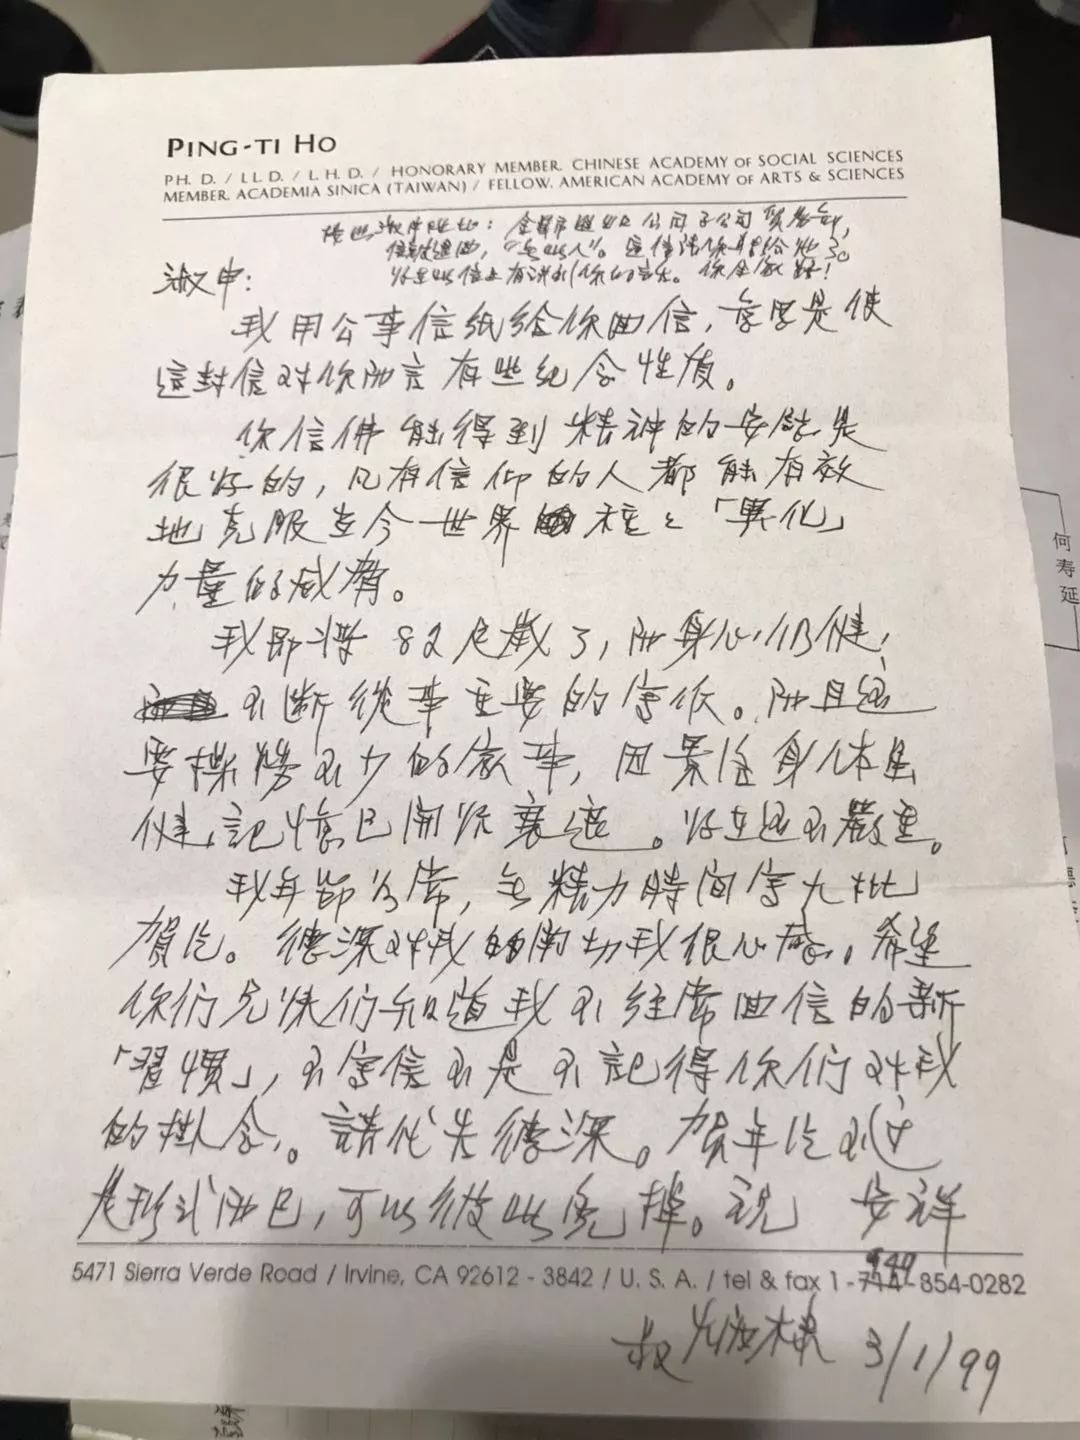 PING-TI HO
PH. D. / LL. D. / L. H. D. / HONORARY MEMBER, CHINESE ACADEMY OF SOCIAL SCIENCES
MEMBER, ACADEMIA SINICA (TAIWAN) / FELLOW, AMERICAN ACADEMY OF ARTS & SCIENCES
公司子公司
信被退回，“無此人”。這信請你轉給他
好在此信上有講到你的音樂。你全家好！
淑申：
我用公事信紙給你回信，意思是使
這封信對你而言有些紀念性質。
你信佛能得到精神的安慰是
很好的，凡有信仰的人都能有效
地克服当今世界種々「異化」
力量的威脅。
我即將82足歲了，而身心仍健，
不斷從事重要的寫作。而且還
要操勞不少的家事，因景洛身体虽
健，記憶已開始衰退。好在还不嚴重。
我年節公常，無精力時間寫大批
賀片。德深对我的關切我很心感。希望
你們兄妹们知道我不經常回信的新
「習慣」，不寫信不是不記得你们对我
的掛念。請代告德深。賀年片不过
是形式而已，可以彼此免掉。祝 安祥
5471 Sierra Verde Road / Irvine, CA 92612 - 3842 / U. S. A. / tel & fax 1 - 949 714 - 854-0282
叔 炳棣 3/1/99
何
寿
延